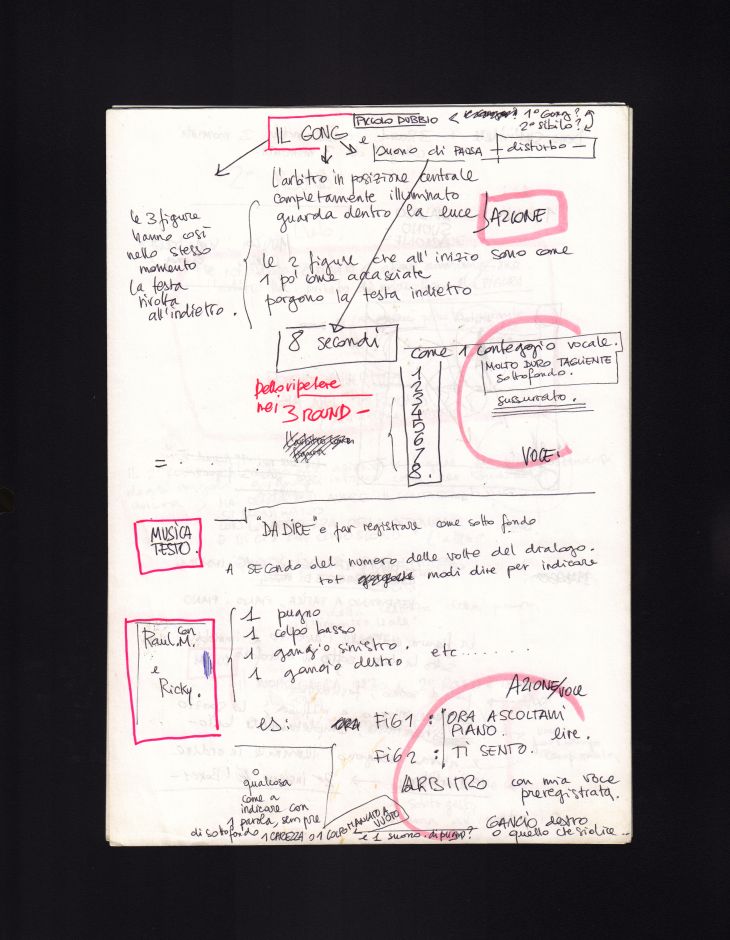 IL GONG
PICCOLO DUBBIO < 1° Gong?
2° Sibilo?
e suono di PAUSA + disturbo —
l'arbitro in posizione centrale
completamente illuminato
guarda dentro la luce
AZIONE
le 3 figure
hanno così
nello stesso
momento
la testa
rivolta
all'indietro.
le 2 figure che all'inizio sono come
1 po' come accasciate
porgono la testa indietro
8 secondi
come 1 conteggio vocale.
MOLTO DURO TAGLIENTE
sottofondo.
sussurrato.
1
2
3
4
5
6
7
8.
VOCE.
ripetere
nei 3 ROUND —
= . . . .
MUSICA
TESTO.
"DA DIRE" e far registrare come sotto fondo
A SECONDO del numero delle volte del dialogo.
tot modi dire per indicare
Raul.M. con
e
Ricky.
1 pugno
1 colpo basso
1 gangio sinistro.
1 gangio destro
etc.......
AZIONE/VOCE
es: ORA FIG 1 : ORA ASCOLTAMI
PIANO. lire.
FIG 2 : TI SENTO.
ARBITRO con mia voce
preregistrata.
GANCIO destro
o quello che si dice...
o
qualcosa
come a
indicare con
1 parola, sempre
di sottofondo 1 CAREZZA o 1 COLPO MANCATO A
VUOTO
e 1 suono di pugno?